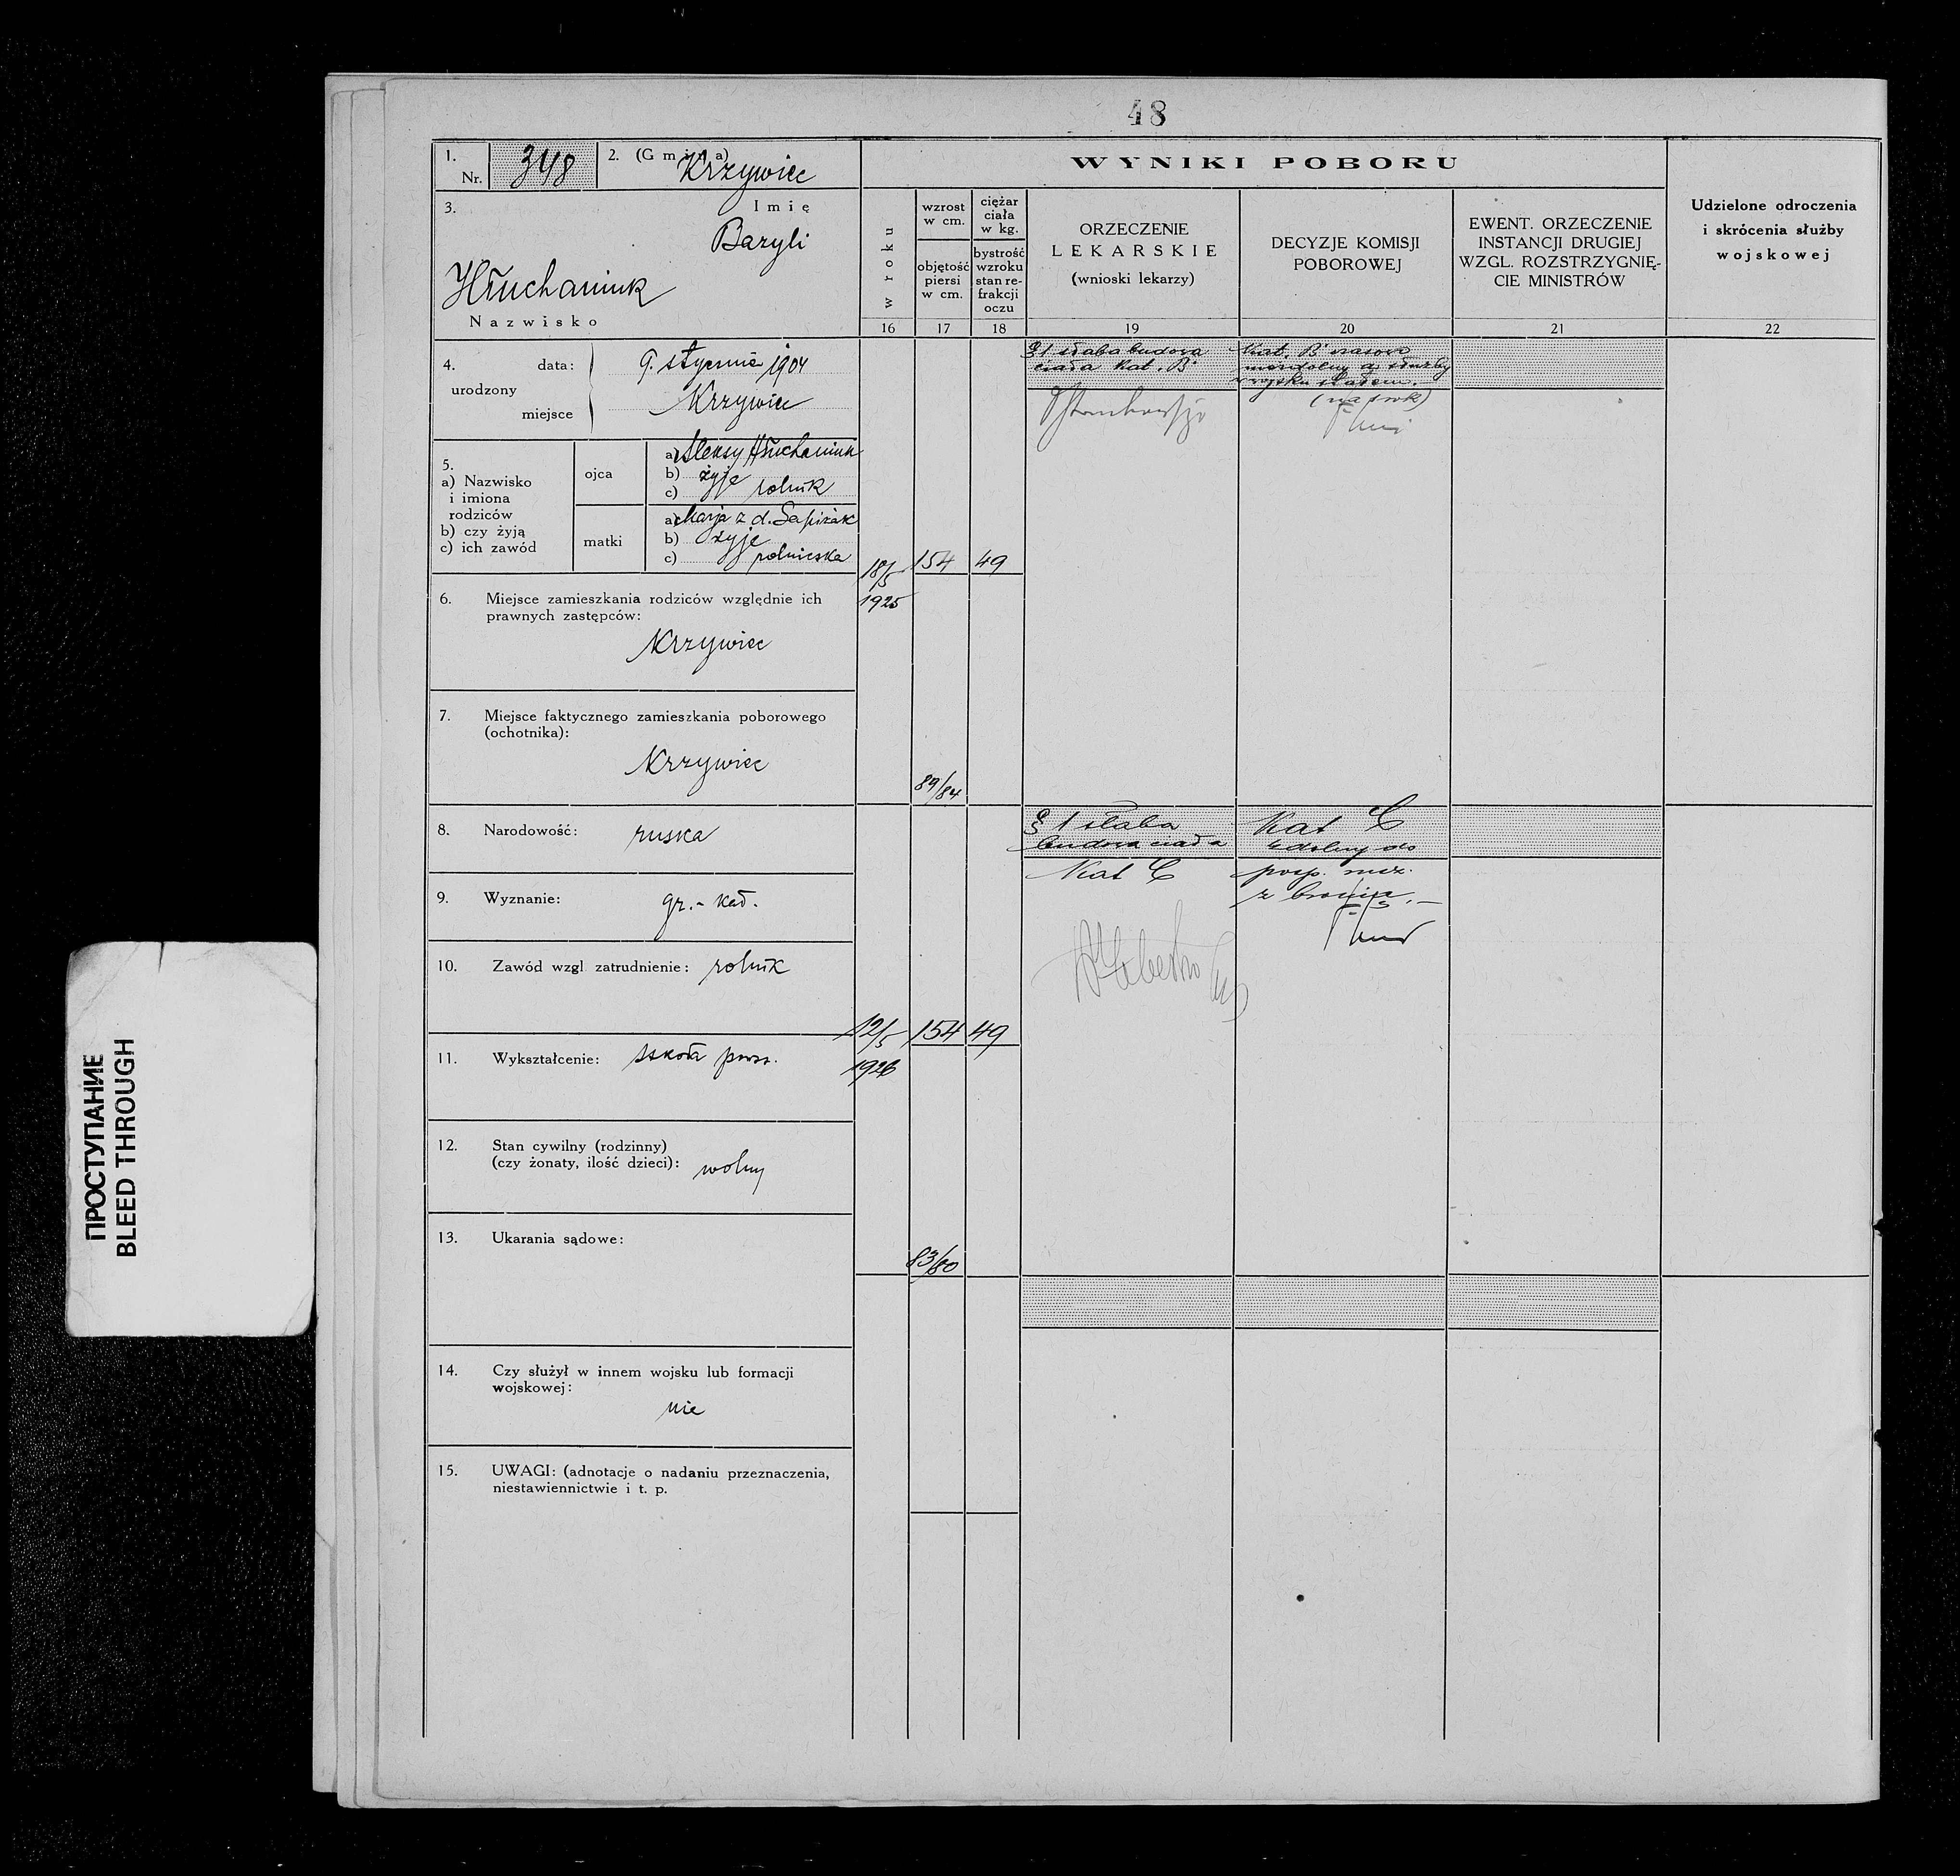 48
1.
Nr. 348
2. (Gmina) Krzywiec
WYNIKI POBORU
3.
Imię
Bazyli
Hłuchaniuk
Nazwisko
w roku
wzrost
w cm.
objętość
piersi
w cm.
ciężar
ciała
w kg.
bystrość
wzroku
stan re-
frakcji
oczu
ORZECZENIE
LEKARSKIE
(wnioski lekarzy)
DECYZJE KOMISJI
POBOROWEJ
EWENT. ORZECZENIE
INSTANCJI DRUGIEJ
WZGL. ROZSTRZYGNIĘ-
CIE MINISTRÓW
Udzielone odroczenia
i skrócenia służby
wojskowej
16 17 18 19 20 21 22
4. data: 9. stycznia 1904
urodzony
miejsce Krzywiec
5.
a) Nazwisko
i imiona
rodziców
b) czy żyją
c) ich zawód
ojca
a) Aleksy Hłuchaniuk
b) żyje
c) rolnik
matki
a) Marja z d. Sapiżak
b) żyje
c) rolniczka
6. Miejsce zamieszkania rodziców względnie ich
prawnych zastępców:
Krzywiec
7. Miejsce faktycznego zamieszkania poborowego
(ochotnika):
Krzywiec
8. Narodowość: ruska
9. Wyznanie: gr.-kat.
10. Zawód wzgl. zatrudnienie: rolnik
11. Wykształcenie: szkoła pow.
12. Stan cywilny (rodzinny)
(czy żonaty, ilość dzieci): wolny
13. Ukarania sądowe:
14. Czy służył w innem wojsku lub formacji
wojskowej:
nie
15. UWAGI: (adnotacje o nadaniu przeznaczenia,
niestawiennictwie i t. p.
18/5 154 49
1925
89/84
§ 1 słaba budowa
ciała Kat. B
Kat. B czasowo
niezdolny do służby
w wojsku stałem.
(na rok)
12/5 154 49
1926
83/80
§ 1 słaba
budowa ciała
Kat C
Kat C
zdolny do
posp. rusz.
z bronią.
ПРОСТУПАНИЕ
BLEED THROUGH